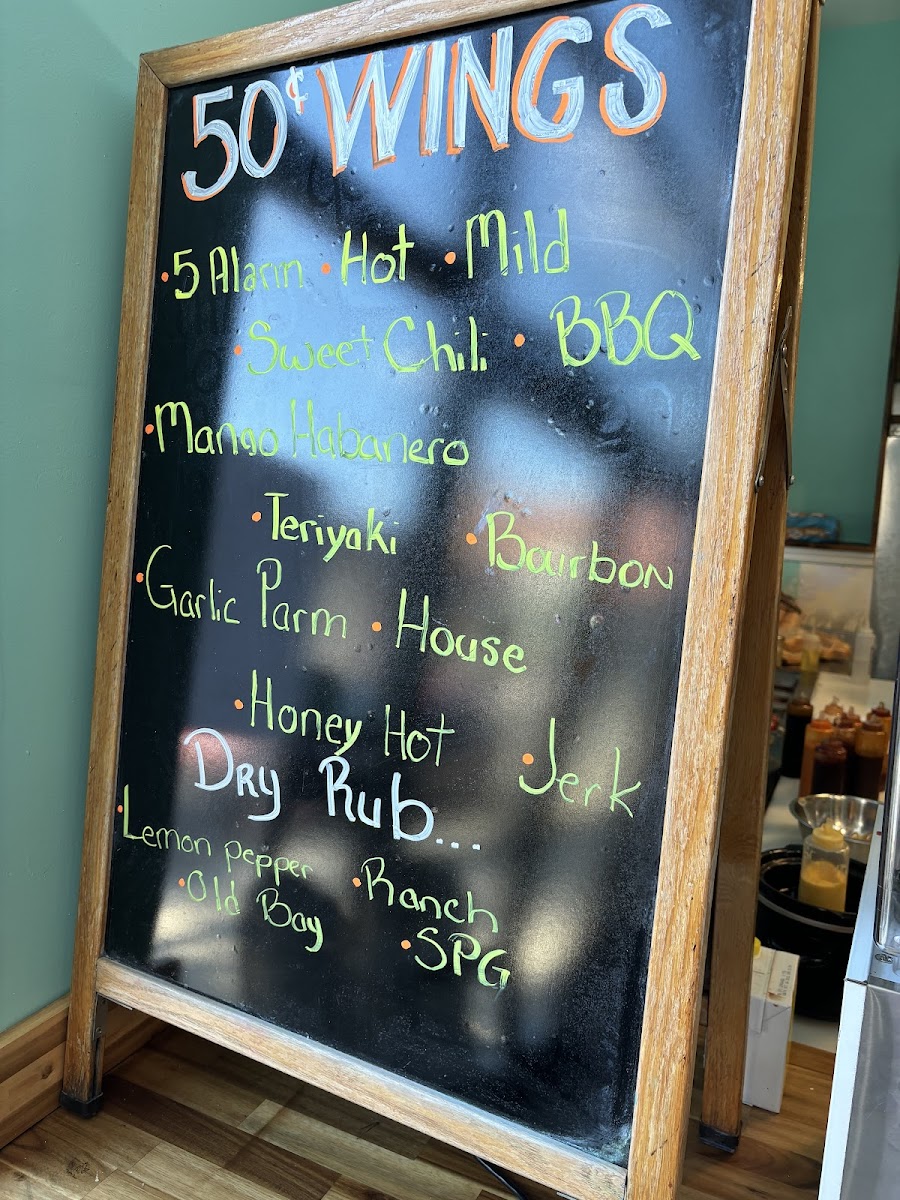 50¢ WINGS
• 5 Alarm • Hot • Mild
• Sweet Chili • BBQ
• Mango Habanero
• Teriyaki • Bourbon
• Garlic Parm • House
• Honey Hot • Jerk
Dry Rub...
• Lemon pepper • Ranch
• Old Bay • SPG